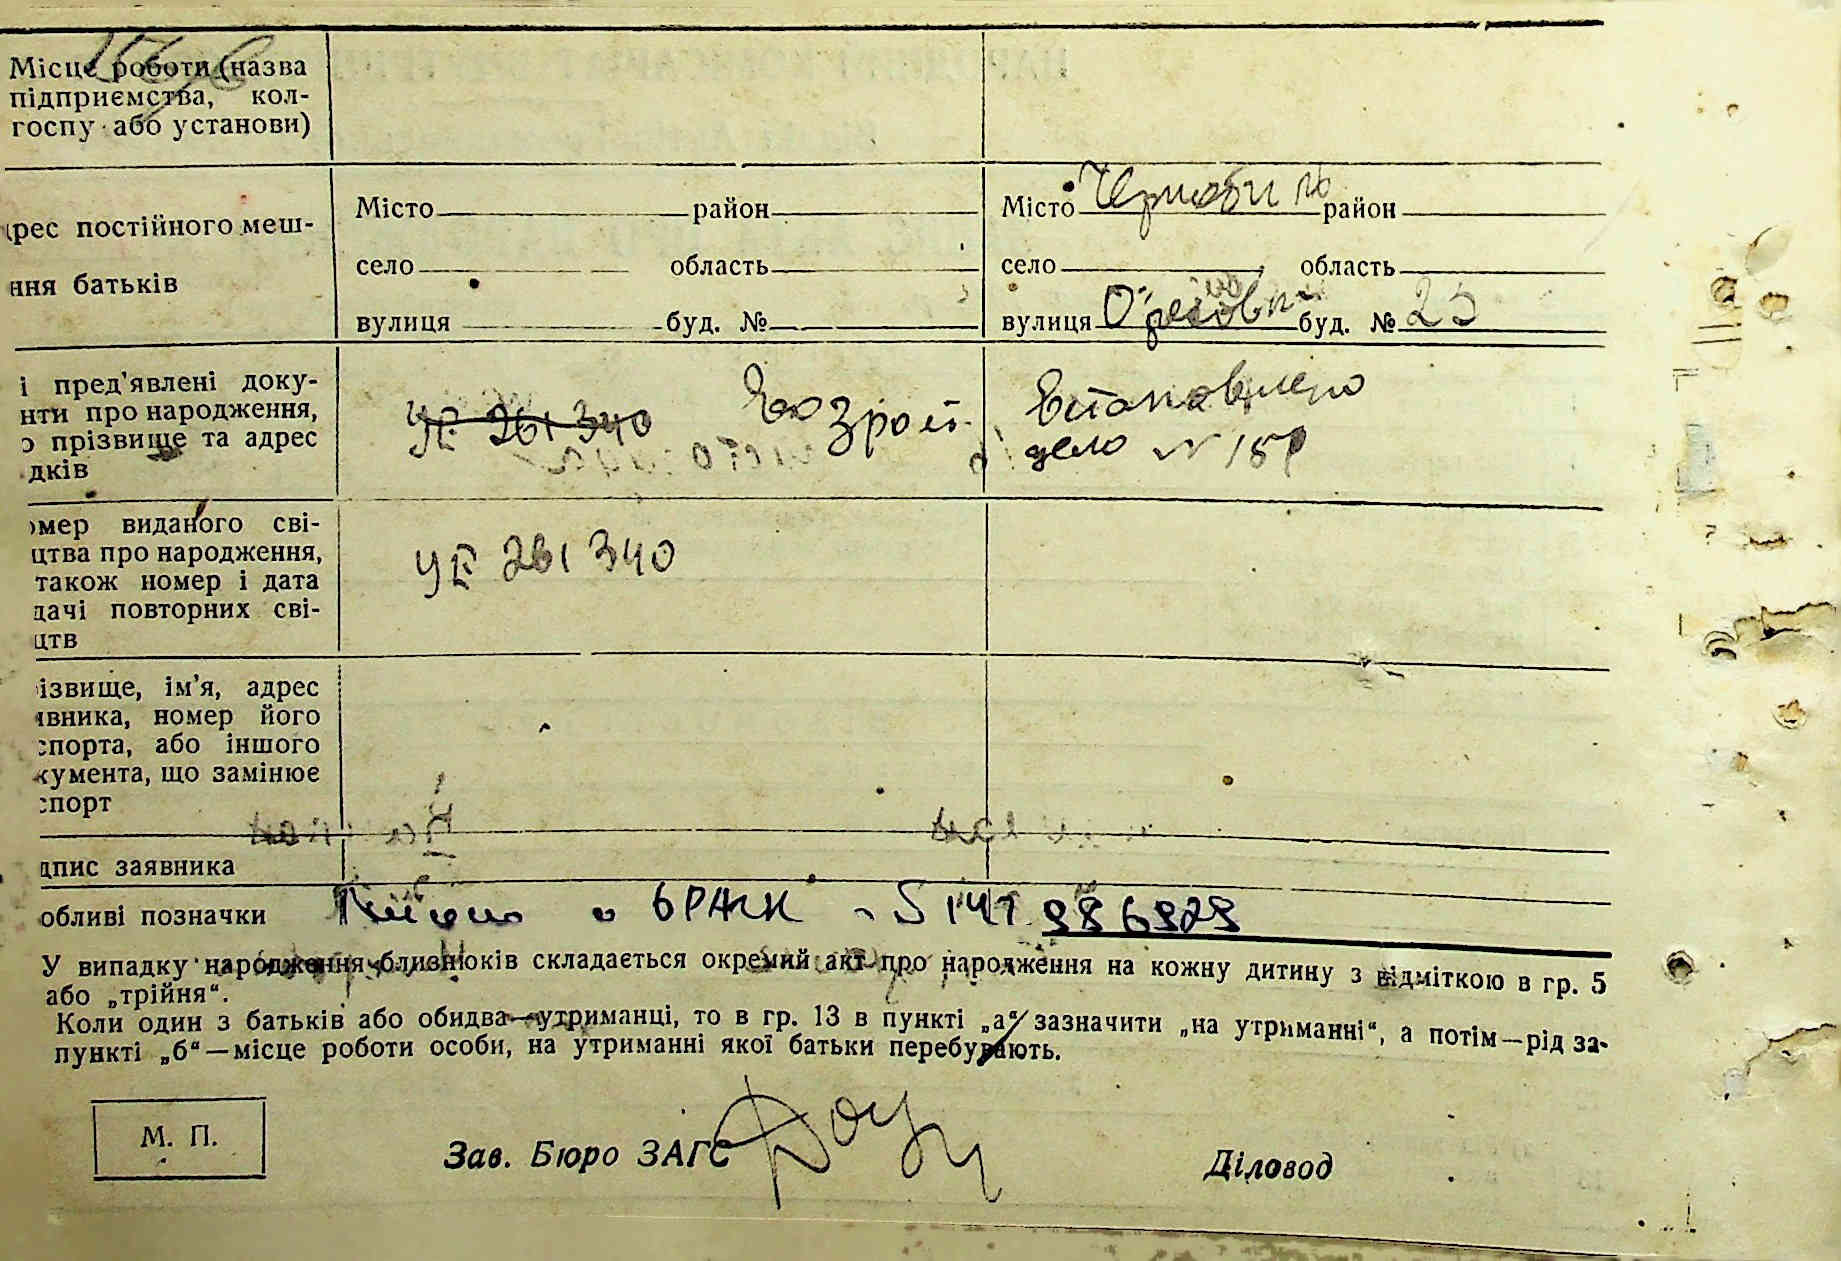 Місце роботи (назва
підприємства, кол-
госпу або установи)
рес постійного меш-
ння батьків
Місто район
село область
вулиця буд. №
Місто Чернобиль район
село область
вулиця буд. № 23
і пред'явлені доку-
нти про народження,
о прізвище та адрес
дків
УЕ 261 340
Возраст
Встановлено
дело N 159
омер виданого сві-
цтва про народження,
також номер і дата
дачі повторних сві-
цтв
УЕ 261 340
ізвище, ім'я, адрес
явника, номер його
спорта, або іншого
кумента, що замінює
спорт
дпис заявника
обливі позначки
о БРАК 986929
У випадку народження близнюків складається окремий акт про народження на кожну дитину з відміткою в гр. 5
або „трійня“.
Коли один з батьків або обидва—утриманці, то в гр. 13 в пункті „а“ зазначити „на утриманні“, а потім—рід за-
пункті „б“—місце роботи особи, на утриманні якої батьки перебувають.
М. П.
Зав. Бюро ЗАГС
Діловод